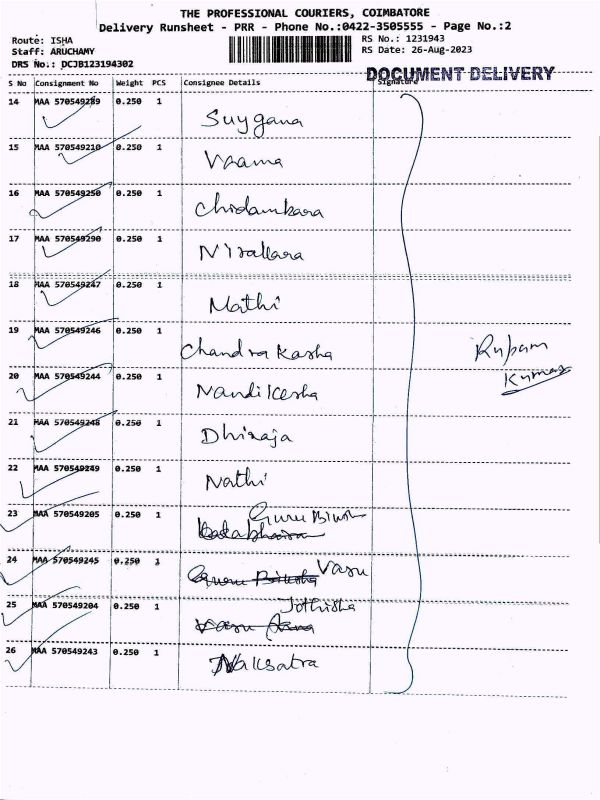 THE PROFESSIONAL COURIERS, COIMBATORE
Delivery Runsheet - PRR - Phone No.:0422-3505555 - Page No.:2
Route: ISHA
RS No.: 1231943
Staff: ARUCHAMY
RS Date: 26-Aug-2023
DRS No.: DCJB123194302
DOCUMENT DELIVERY
S No Consignment No Weight PCS Consignee Details Signature
14 MAA 570549289 0.250 1 Suygana
15 MAA 570549210 0.250 1 Vaama
16 MAA 570549250 0.250 1 Chidambara
17 MAA 570549290 0.250 1 Nirakara
18 MAA 570549247 0.250 1 Mathi
19 MAA 570549246 0.250 1 Chandra Kasha
Rupam
Kumar
20 MAA 570549244 0.250 1 Nandikesha
21 MAA 570549248 0.250 1 Dhiraja
22 MAA 570549249 0.250 1 Nathi
23 MAA 570549205 0.250 1 Guru
24 MAA 570549245 0.250 1 Guru Biksha Vasu
25 MAA 570549204 0.250 1 Jothisha
Vasu
26 MAA 570549243 0.250 1 Naksatra